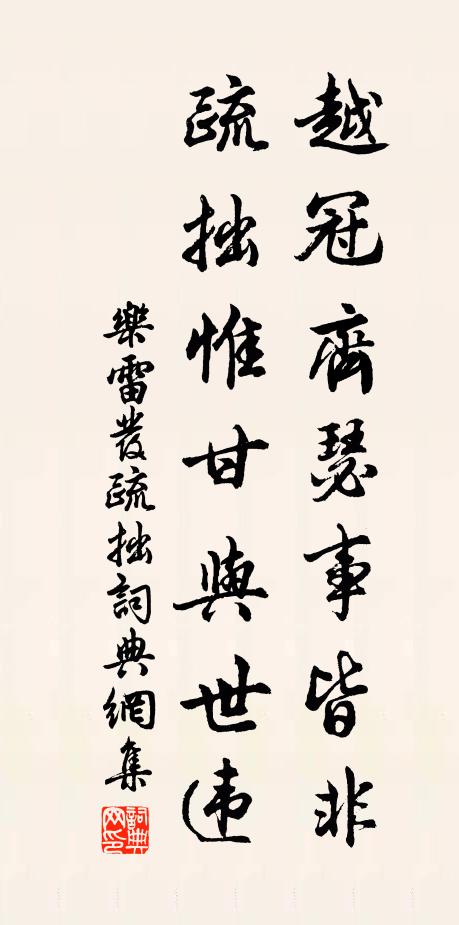 越冠齊瑟事皆非
疏拙惟甘與世违
樂雷發疏拙詞典網集
詞典網印